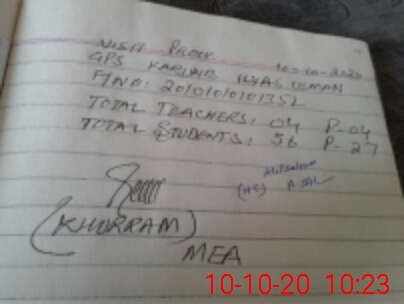 VISIT PROOF 10-10-2020
GPS KARUNB ILYAS USMAN
FINO: 20101010101351
TOTAL TEACHERS: 04 P-04
TOTAL STUDENTS: 56 P-27
(HS)
(KHURRAM)
MEA
10-10-20 10:23